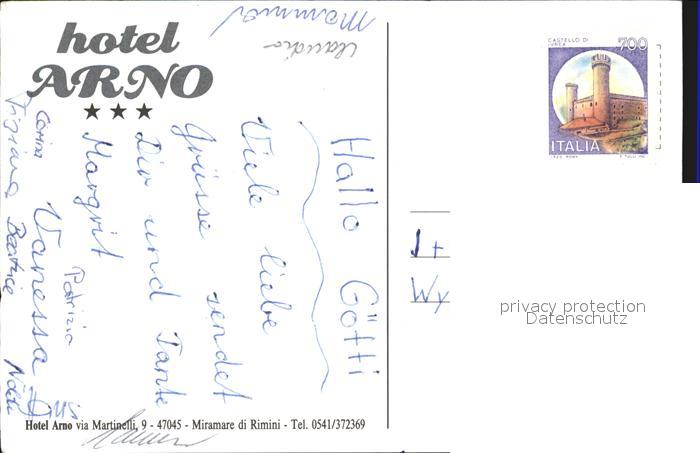 hotel
ARNO
Hallo Götti
Viele liebe
Grüsse sendet
Dir und Tante
Margrit
Vanessa
Patrizia
Corina
Beatrice
Claudio
CASTELLO DI
IVREA
700
ITALIA
privacy protection
Datenschutz
Hotel Arno via Martinelli, 9 - 47045 - Miramare di Rimini - Tel. 0541/372369